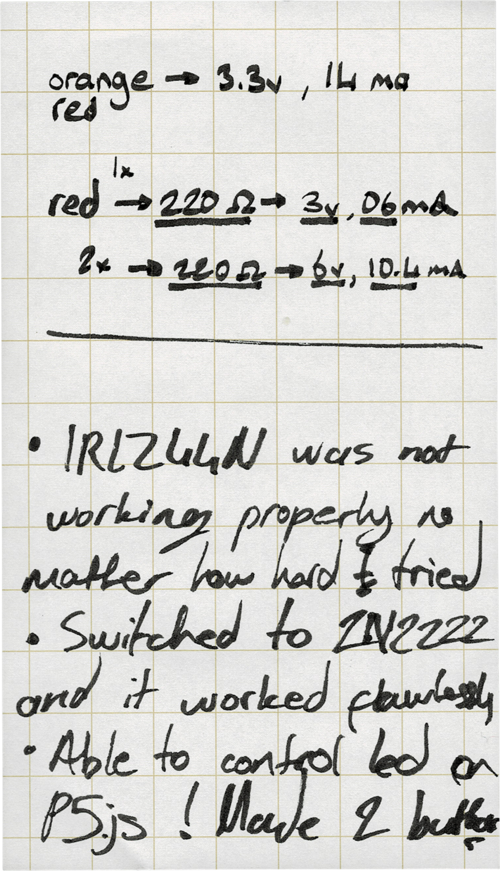 orange → 3.3v , 14 ma
red
1x
red → 220 Ω → 3v, 06 mA
2x → 220 Ω → 6v, 10.4 mA
• IRLZ44N was not
working properly no
matter how hard I tried
• Switched to 2N2222
and it worked flawlessly
• Able to control led on
P5.js ! Made 2 buttons